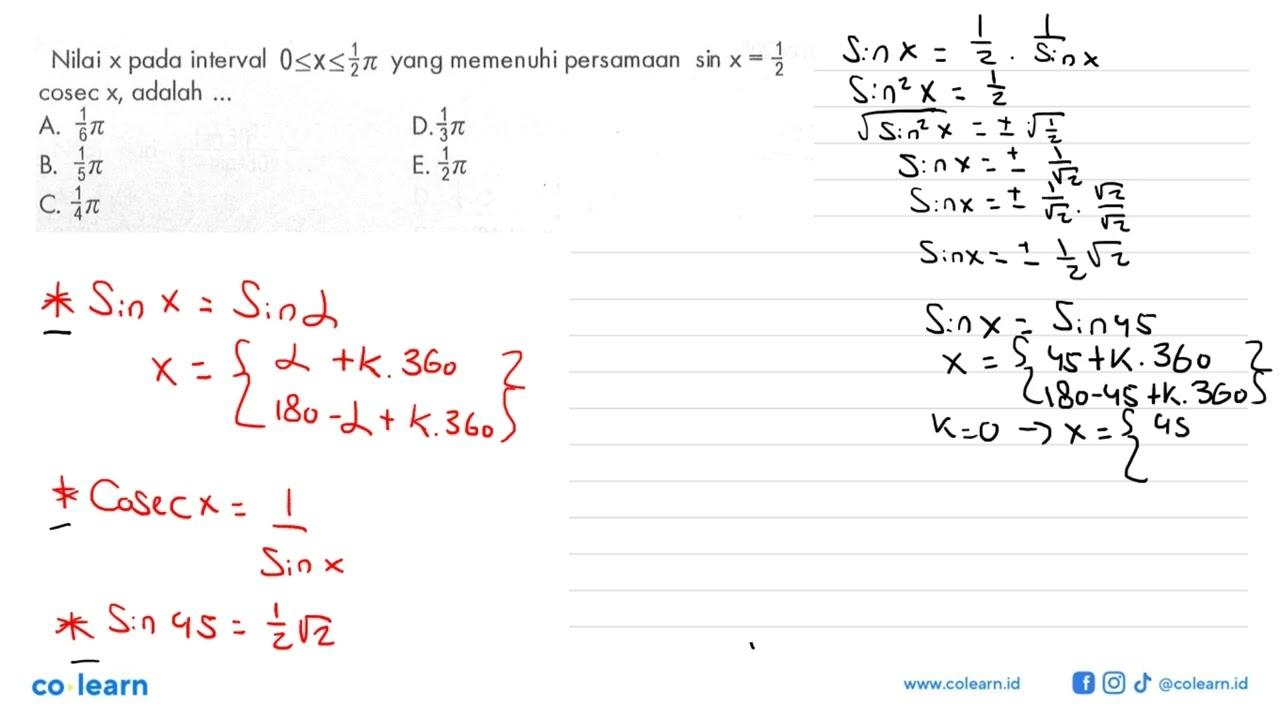 Nilai x pada interval 0≤x≤½π yang memenuhi persamaan sin x = ½
cosec x, adalah ...
A. 1/6 π
B. 1/5 π
C. 1/4 π
D. 1/3 π
E. 1/2 π
* Sin x = Sin α
x = { α + k.360 }
{ 180 - α + k.360 }
* Cosec x = 1/Sin x
* Sin 45 = 1/2 √2
Sin x = 1/2 . 1/Sin x
Sin² x = 1/2
√Sin² x = ± √1/2
Sin x = ± 1/√2
Sin x = ± 1/√2 . √2/√2
Sin x = ± 1/2 √2
Sin x = Sin 45
x = { 45 + k.360 }
{ 180-45 + k.360 }
k=0 → x = { 45
co learn
www.colearn.id
@colearn.id